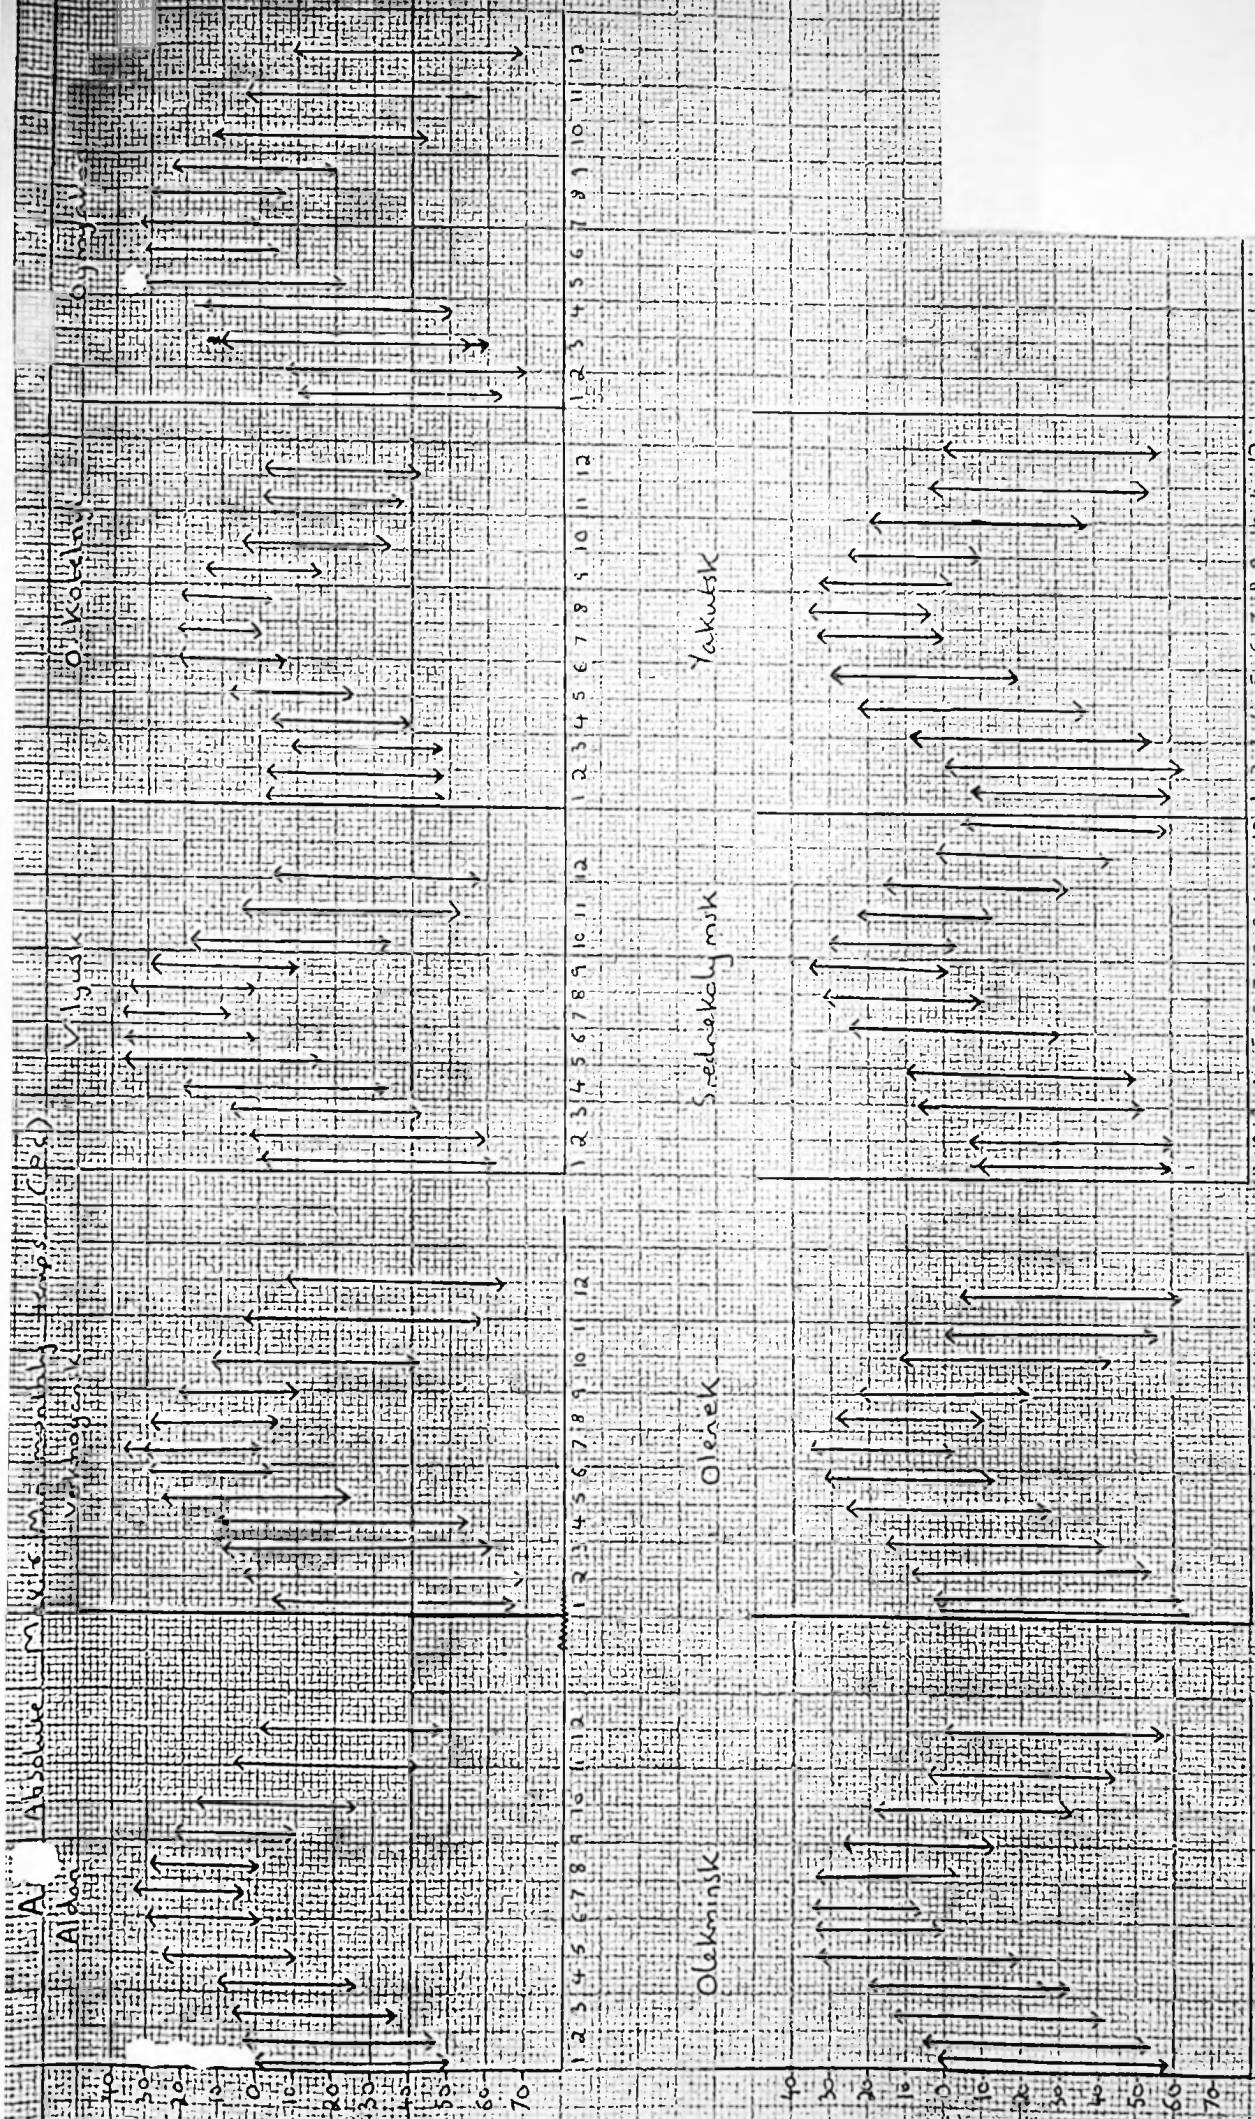 A Absolute Max & Min monthly temps (IPS)
Aldan Verkhoyansk Vilyusk O. Kotelnyi Oymyakon
40
30
20
10
0
10
20
30
40
50
60
70
1 2 3 4 5 6 7 8 9 10 11 12
1 2 3 4 5 6 7 8 9 10 11 12
1 2 3 4 5 6 7 8 9 10 11 12
1 2 3 4 5 6 7 8 9 10 11 12
1 2 3 4 5 6 7 8 9 10 11 12
Olekminsk Olenek Srednekolymsk Yakutsk
40
30
20
10
0
10
20
30
40
50
60
70